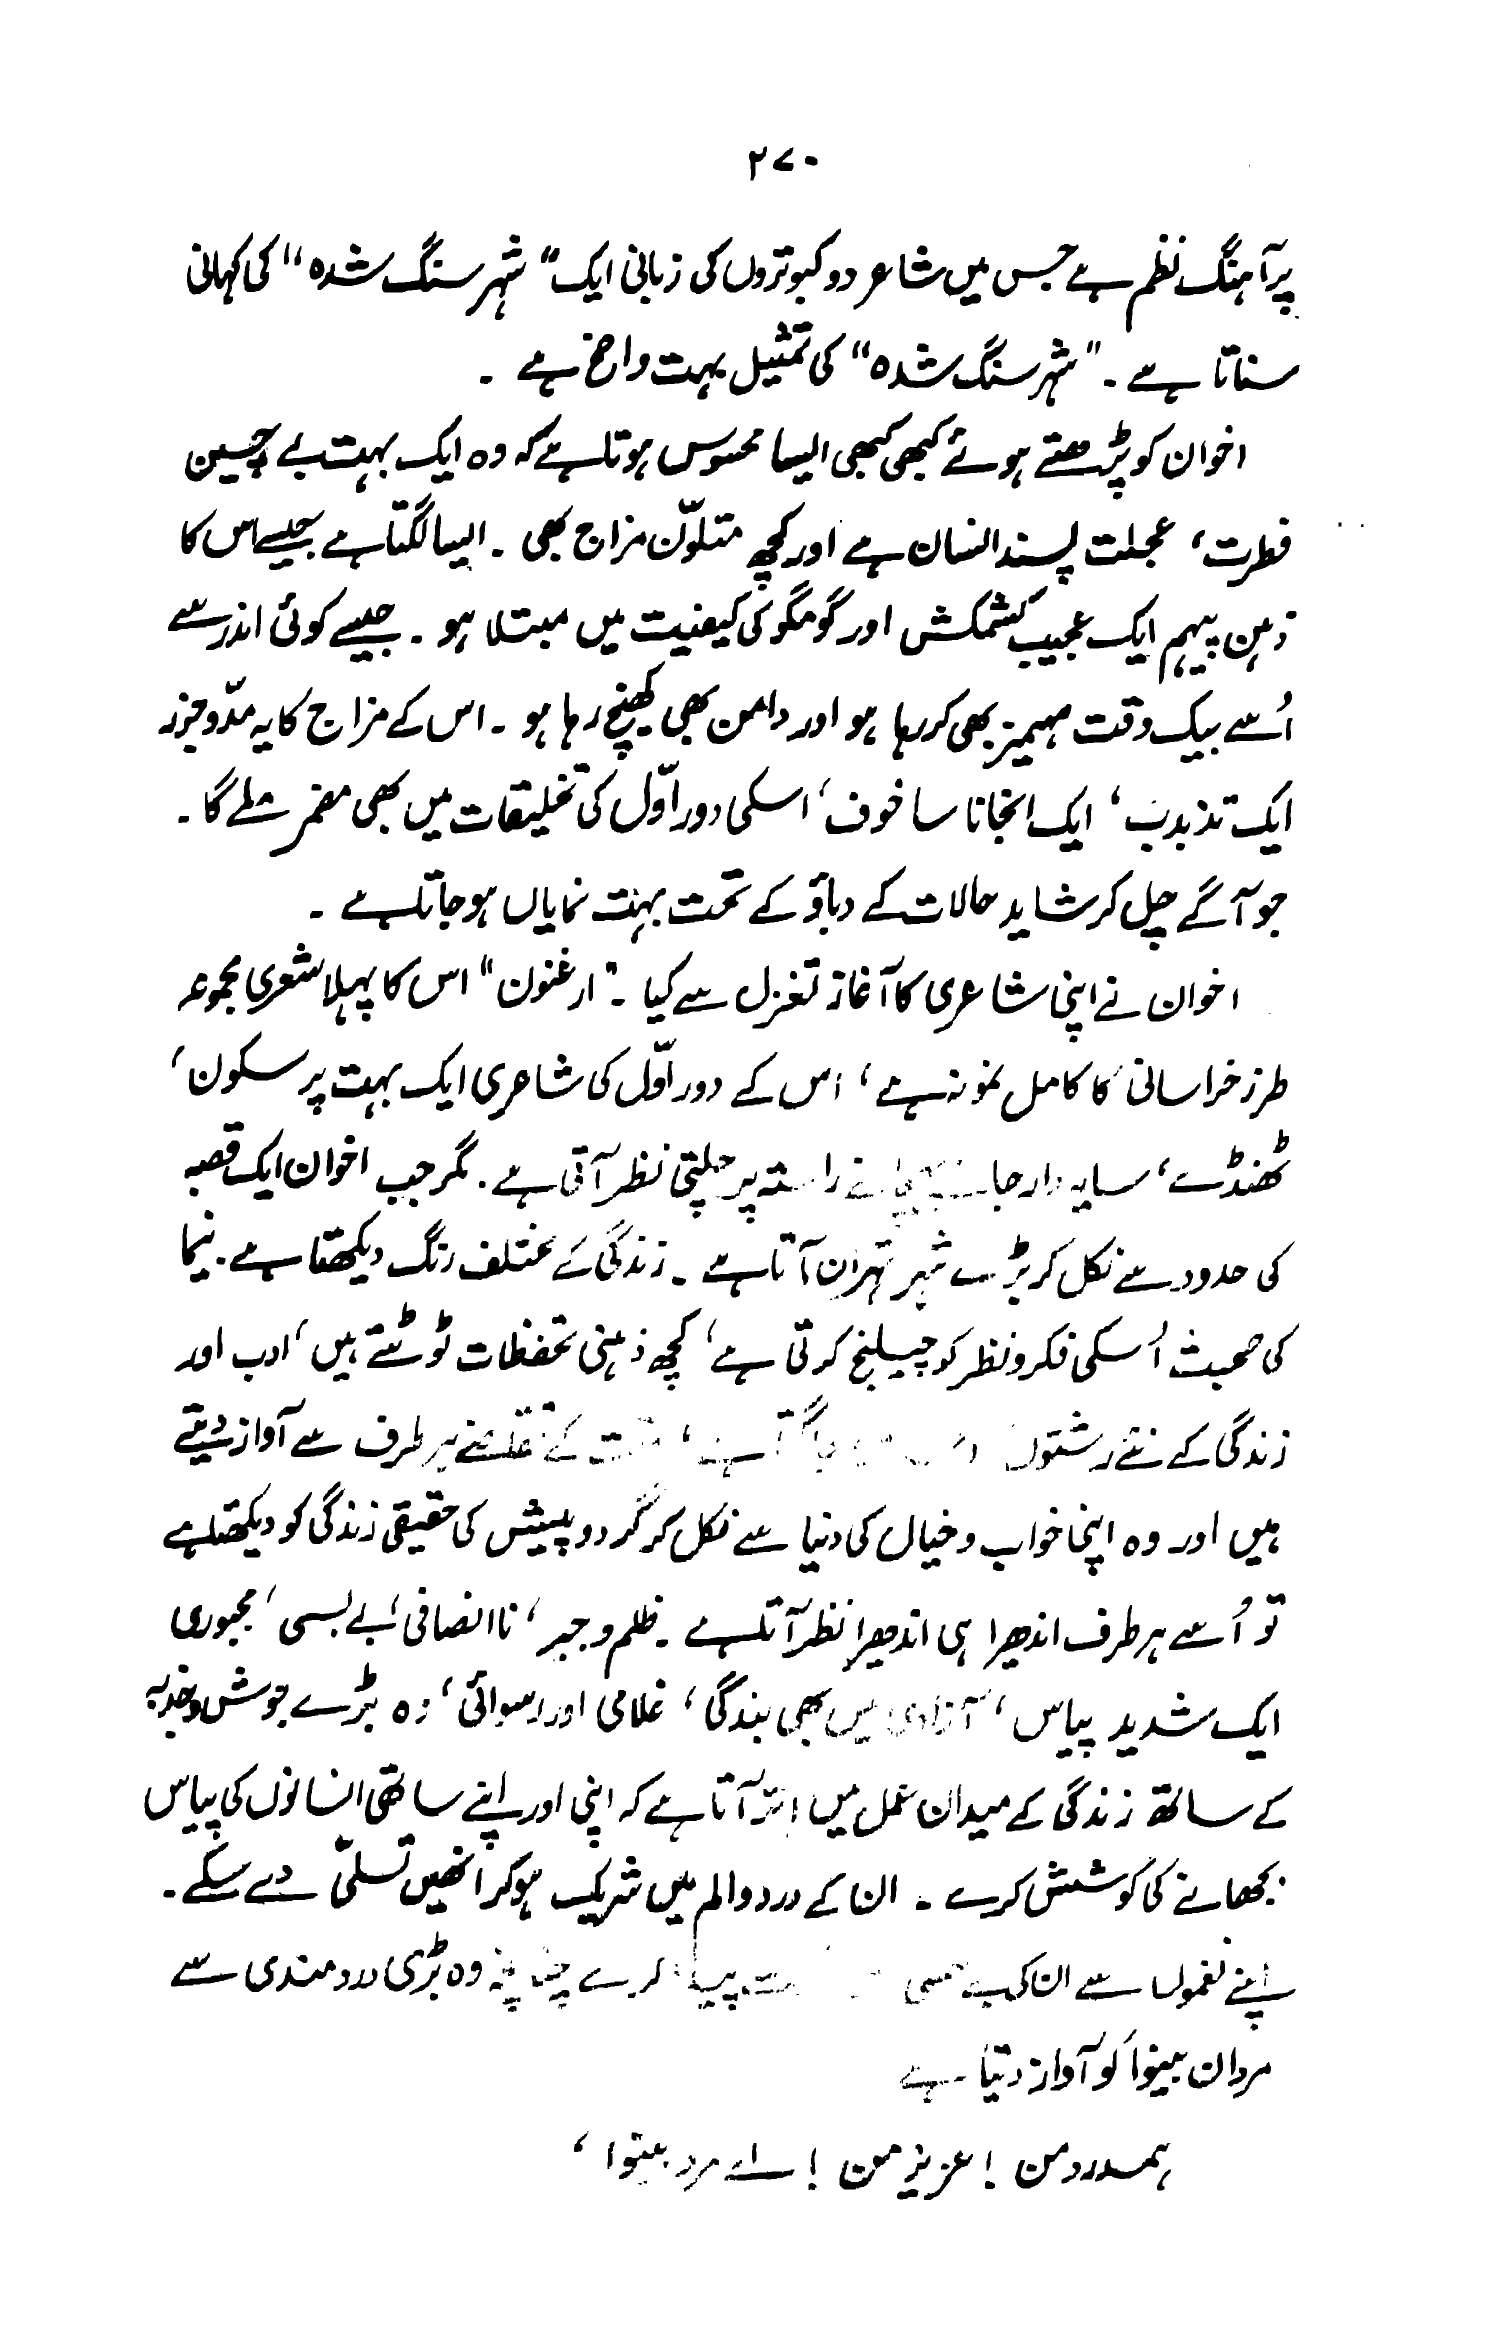 ۲۷۰
پرآہنگ نظم ہے جس میں شاعر دو کبوتروں کی زبانی ایک "شہر سنگ شدہ" کی کہانی
سناتا ہے۔ "شہر سنگ شدہ" کی تمثیل بہت واضح ہے ۔
اخوان کو پڑھتے ہوئے کبھی کبھی ایسا محسوس ہوتا ہے کہ وہ ایک بہت بے چین
فطرت، عجلت پسند انسان ہے اور کچھ متلوّن مزاج بھی ۔ ایسا لگتا ہے جیسے اس کا
ذہن پیہم ایک عجیب کشمکش اور گومگو کی کیفیت میں مبتلا ہو ۔ جیسے کوئی اندر سے
اُسے بیک وقت مہمیز بھی کر رہا ہو اور دامن بھی کھینچ رہا ہو ۔ اس کے مزاج کا یہ مدّوجزر
ایک تذبذب، ایک انجانا سا خوف، اسکی دور اوّل کی تخلیقات میں بھی مضمر ملے گا ۔
جو آگے چل کر شاید حالات کے دباؤ کے تحت بہت نمایاں ہو جاتا ہے ۔
اخوان نے اپنی شاعری کا آغاز تغزل سے کیا ۔ "ارغنون" اس کا پہلا شعری مجموعہ
طرز خراسانی کا کامل نمونہ ہے، اس کے دور اوّل کی شاعری ایک بہت پر سکون،
ٹھنڈے، سایہ دار راستہ پر چلتی نظر آتی ہے ۔ مگر جب اخوان ایک قصبہ
کی حدود سے نکل کر بڑے شہر تہران آتا ہے ۔ زندگی کے مختلف رنگ دیکھتا ہے ۔ نیما
کی صحبت اُسکی فکر و نظر کو چیلنج کرتی ہے، کچھ ذہنی تحفظات ٹوٹتے ہیں، ادب اور
زندگی کے نئے رشتوں ہے، کے تقاضے ہر طرف سے آواز دیتے
ہیں اور وہ اپنی خواب و خیال کی دنیا سے نکل کر گردوپیش کی حقیقی زندگی کو دیکھتا ہے
تو اُسے ہر طرف اندھیرا ہی اندھیرا نظر آتا ہے ۔ ظلم و جبر، ناانصافی، بے بسی، مجبوری
ایک شدید پیاس، آزادی میں بھی بندگی، غلامی اور رسوائی، وہ بڑے جوش و جذبہ
کے ساتھ زندگی کے میدان عمل میں اتر آتا ہے کہ اپنی اور اپنے ساتھی انسانوں کی پیاس
بجھانے کی کوشش کرے ۔ ان کے درد و الم میں شریک ہو کر انھیں تسلّی دے سکے ۔
اپنے نغموں سے ان کی پیدا کرے چنانچہ وہ بڑی دردمندی سے
مردان بینوا کو آواز دیتا ہے
ہمدرد من ! عزیز من ! اے مرد بینوا،